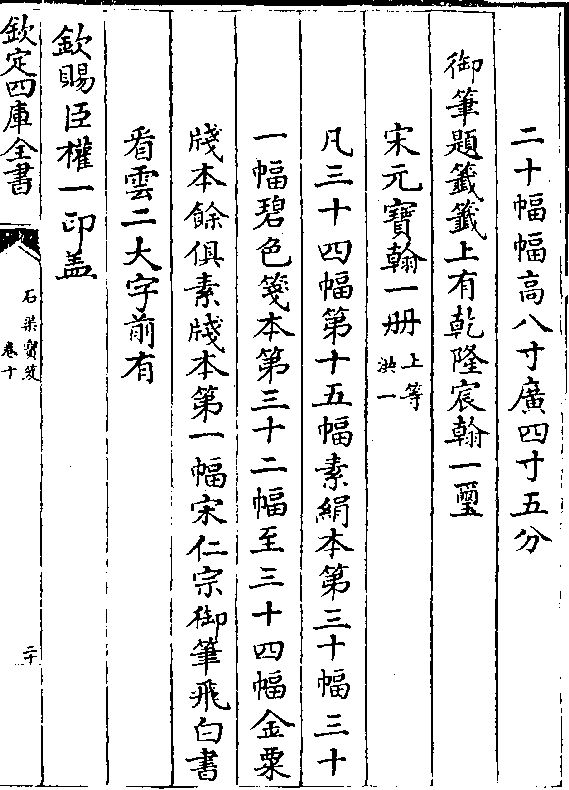 二十幅幅高八寸廣四寸五分
御筆題籤籤上有乾隆宸翰一璽
宋元寶翰一册上等洪一
凡三十四幅第十五幅素絹本第三十幅三十
一幅碧色箋本第三十二幅至三十四幅金粟
牋本餘俱素牋本第一幅宋仁宗御筆飛白書
看雲二大字前有
欽賜臣權一印盖
欽定四庫全書
石渠寶笈
卷十
二十